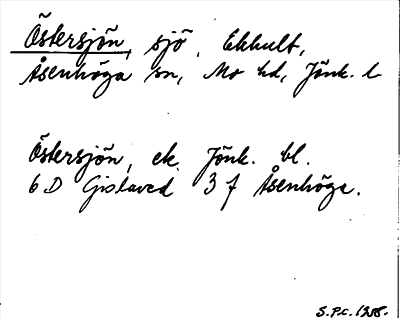 Östersjön, sjö, Ekhult,
Åsenhöga sn, Mo hd, Jönk. l
Östersjön, ek. Jönk. bl.
6 D Gislaved 3 f Åsenhöga.
S.P.C. 1958.